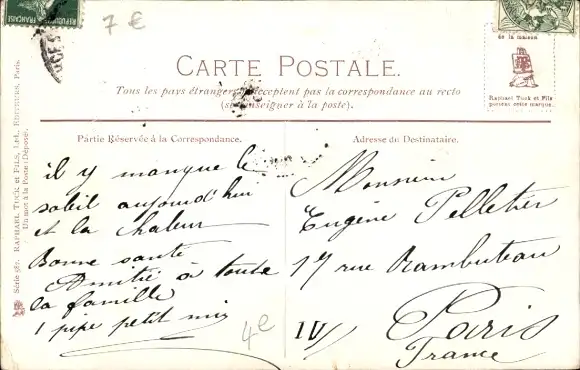 7 €
CARTE POSTALE.
Tous les pays étrangers n'acceptent pas la correspondance au recto
(se renseigner à la poste).
de la maison
Raphael Tuck et Fils
portent cette marque.
Série 587. RAPHAEL TUCK ET FILS, Ltd., EDITEURS, Paris.
Un mot à la Poste (Déposé).
Partie Réservée à la Correspondance.
il y manque le
soleil aujourd'hui
et la chaleur
Bonne santé
Amitié à toute
la famille
1 pipe petit
4e
Adresse du Destinataire.
Monsieur
Eugène Pelletier
17 rue Rambuteau
IV/ Paris
France